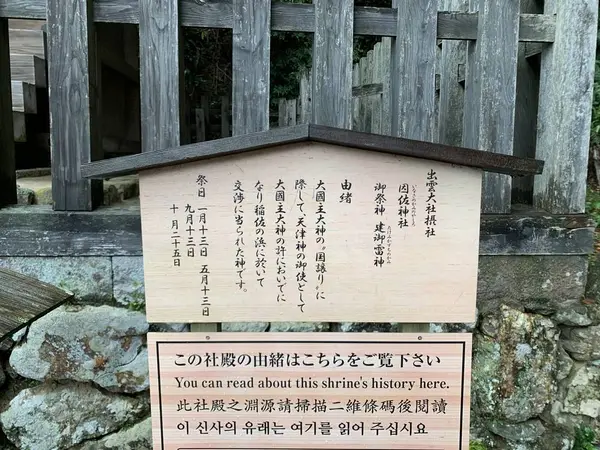 出雲大社摂社
因佐神社
いなさのかみのやしろ
御祭神 建御雷神
たけみかづちのかみ
由緒
大国主大神の〝国譲り〟に
際して、天津神の御使として
大国主大神の許においでに
なり稲佐の浜に於いて
交渉に当られた神です。
祭日 一月十三日 五月十三日
九月十三日
十月二十五日
この社殿の由緒はこちらをご覧下さい
You can read about this shrine's history here.
此社殿之淵源請掃描二維條碼後閱讀
이 신사의 유래는 여기를 읽어 주십시요